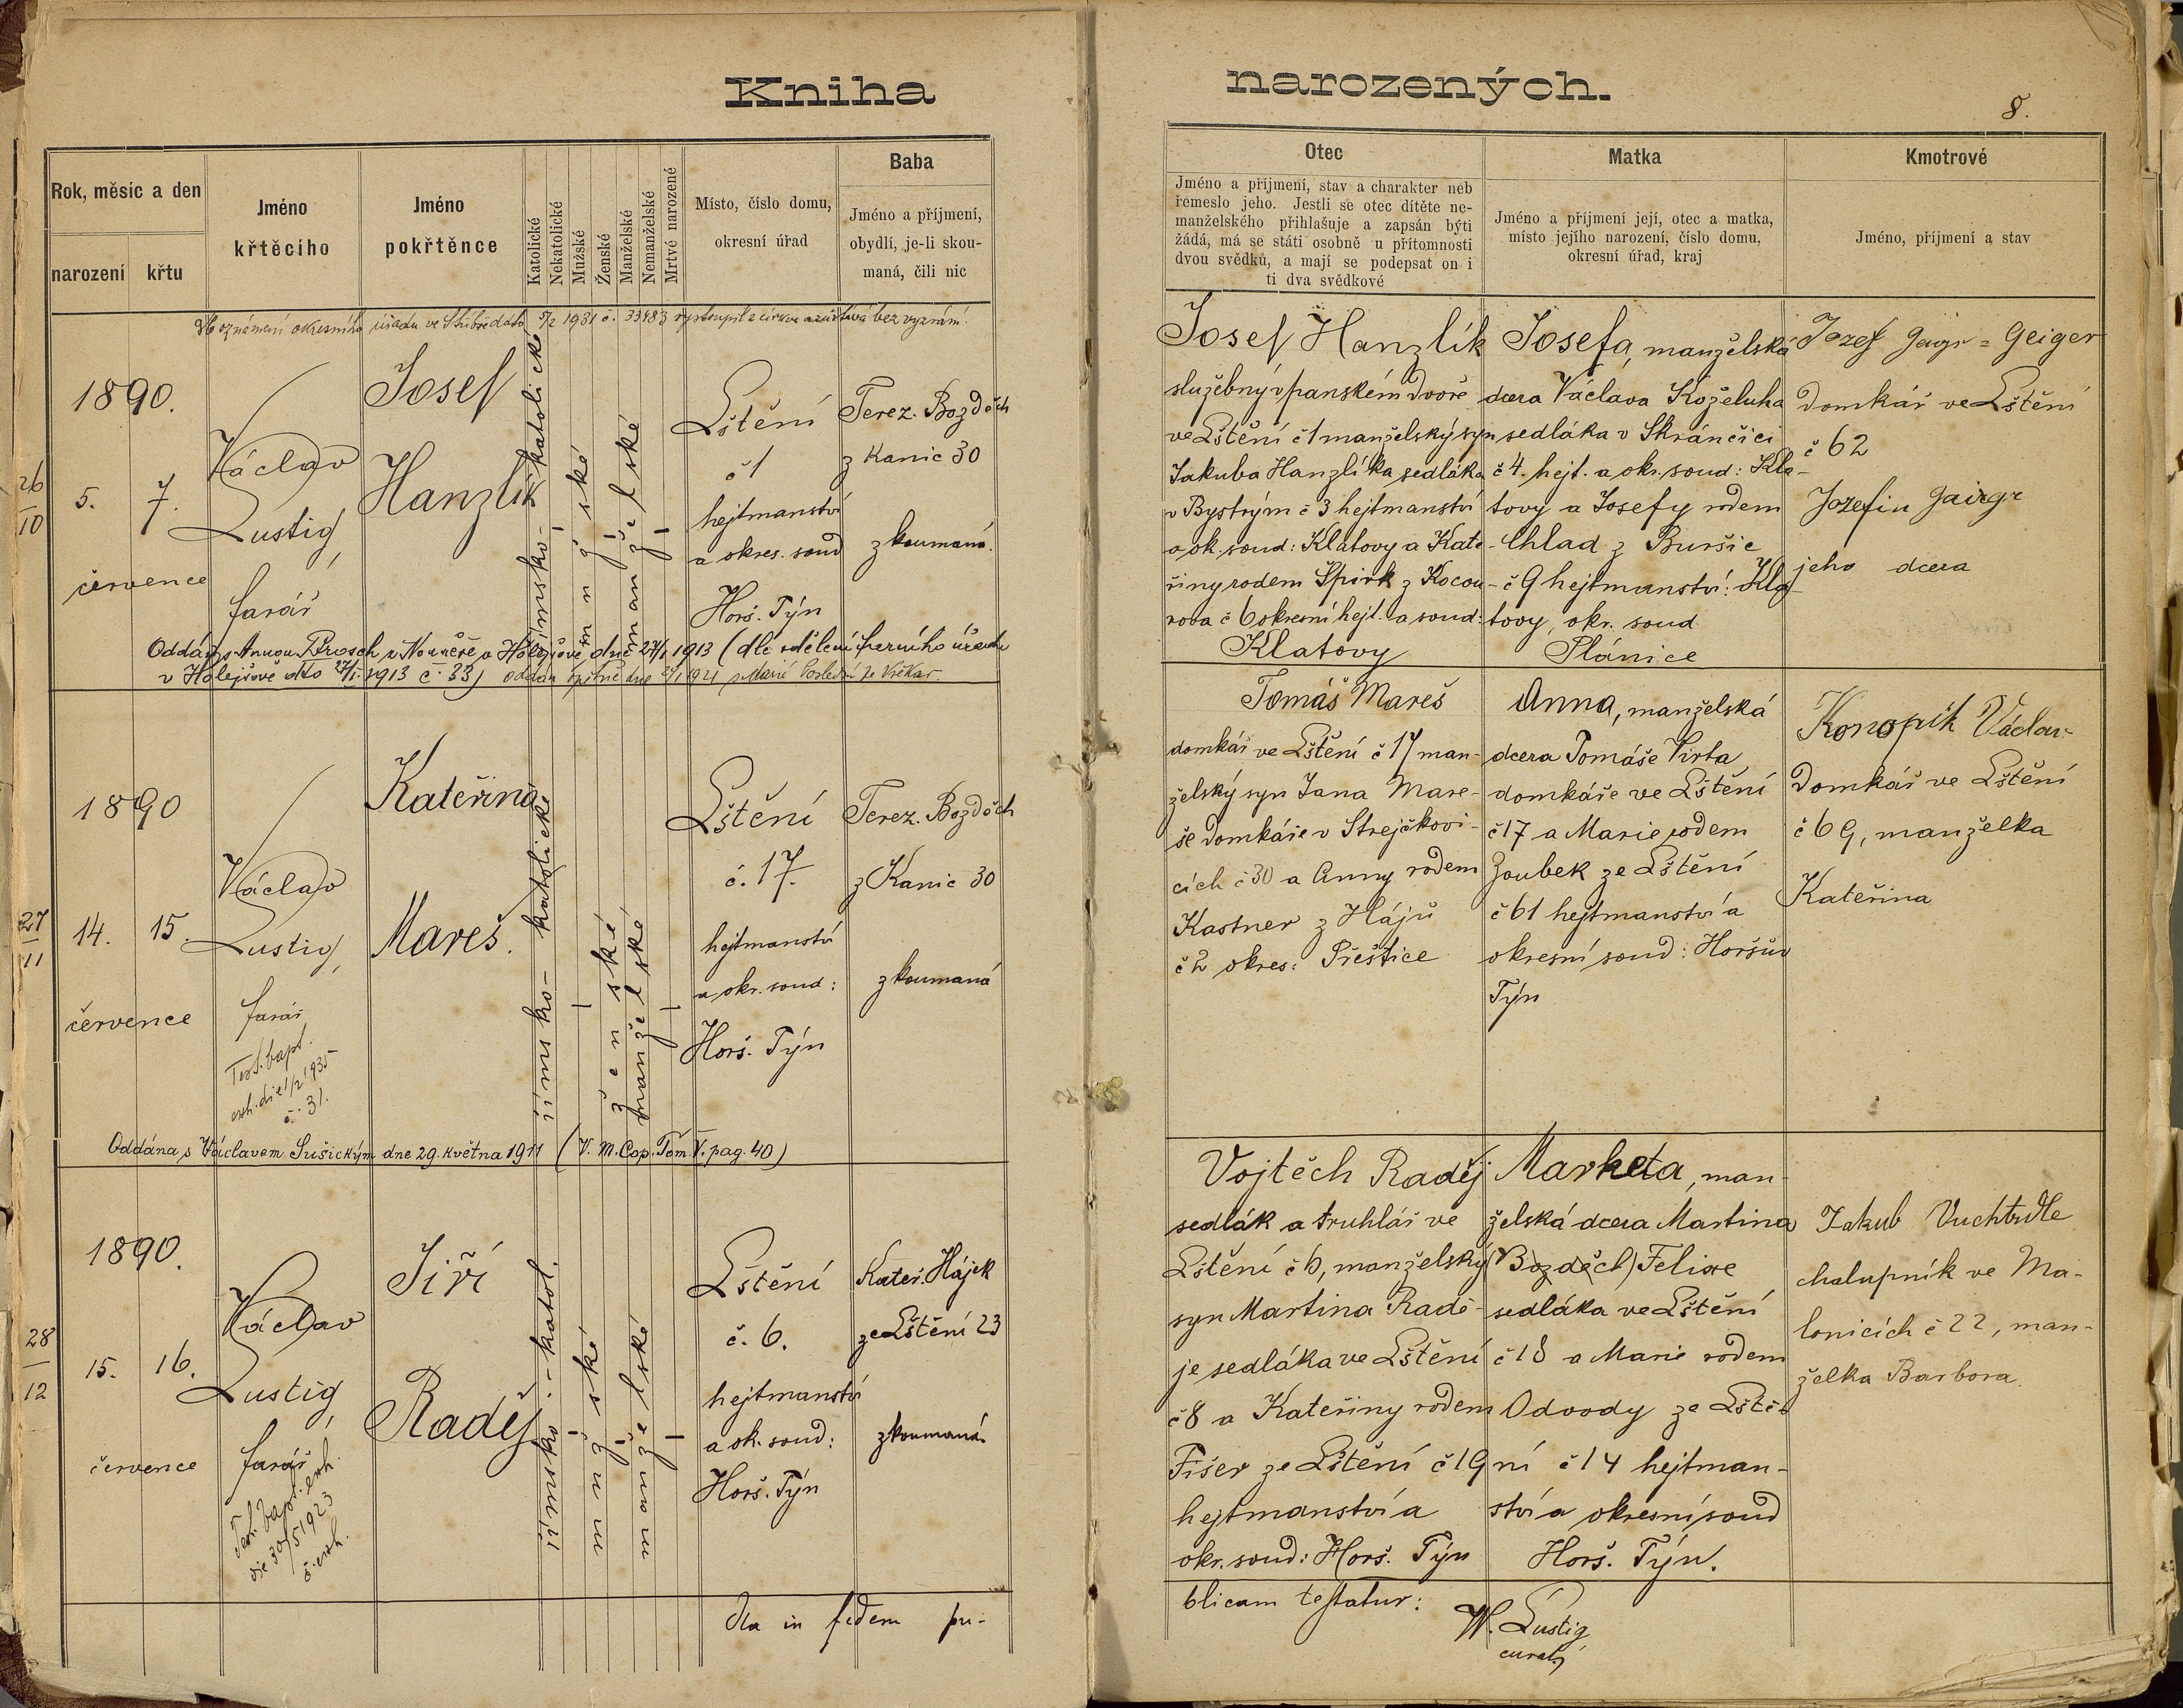 Kniha narozených.
8.
Rok, měsíc a den
narození
křtu
Jméno
křtěcího
Jméno
pokřtěnce
Katolické
Nekatolické
Mužské
Ženské
Manželské
Nemanželské
Mrtvé narozené
Místo, číslo domu,
okresní úřad
Baba
Jméno a příjmení,
obydlí, je-li skou-
maná, čili nic
Otec
Jméno a příjmení, stav a charakter neb
řemeslo jeho. Jestli se otec dítěte ne-
manželského přihlašuje a zapsán býti
žádá, má se státi osobně u přítomnosti
dvou svědků, a mají se podepsat on i
ti dva svědkové
Matka
Jméno a příjmení její, otec a matka,
místo jejího narození, číslo domu,
okresní úřad, kraj
Kmotrové
Jméno, příjmení a stav
oznámení okresního úřadu ve Stříbře dato 5/2 1931 č. 33483 vystoupil z církve a zůstává bez vyznání.
26
10
1890.
5. 7.
července
Václav
Lustig,
farář
Josef
Hanzlík
římsko-katolické
mužské
manželské
Lštění
č 1
hejtmanství
a okres. soud
Horš. Týn
Terez. Bozděch
z Kanic 30
zkoumaná.
Josef Hanzlík
služebný v panském dvoře
ve Lštění č 1 manželský syn
Jakuba Hanzlíka sedláka
v Bystrým č 3 hejtmanství
a ok. soud: Klatovy a Kate-
řiny rodem Špirk z Kocou-
rova č 6 okresní hejt. a soud:
Klatovy
Josefa, manželská
dcera Václava Koželuha
sedláka v Skránčici
č 4. hejt. a okr. soud: Kla-
tovy a Josefy rodem
Chlad z Buršic
č 9 hejtmanství: Kla-
tovy, okr. soud
Plánice
Jozef Gaigr = Geiger
domkář ve Lštění
č 62
Jozefin Gaigr
jeho dcera
Oddán s Annou v Holejšově dne 27/1 1913 (dle sdělení farního úřadu
v Holejšově dto 27/1. 1913 č. 33) oddán opětně dne 1921 s Marií ze Všekar.
27
11
1890
14. 15.
července
Václav
Lustig,
farář
Test. bapt.
exh. die 1/2 1935
č. 31.
Kateřina
Mareš.
římsko- katolické
ženské
manželské
Lštění
č. 17.
hejtmanství
a okr. soud:
Horš. Týn
Terez. Bozděch
z Kanic 30
zkoumaná
Tomáš Mareš
domkář ve Lštění č 17 man-
želský syn Jana Mare-
še domkáře v Strejčkovi-
cích č 30 a Anny rodem
Kastner z Hájů
č 2 okres: Přeštice
Anna, manželská
dcera Tomáše Virta
domkáře ve Lštění
č 17 a Marie rodem
Zoubek ze Lštění
č 61 hejtmanství a
okresní soud: Horšův
Týn
Konopík Václav
Domkář ve Lštění
č 69, manželka
Kateřina
Oddána s Václavem Sušickým dne 29. května 1911 (V. M. Cop. Tom. V. pag. 40)
28
12
1890.
15. 16.
července
Václav
Lustig,
farář
Test. bapt. exh.
die 30/5 1923
č. exh.
Jiří
Raděj
římsko.-katol.
mužské
manželské
Lštění
č. 6.
hejtmanství
a ok. soud:
Horš. Týn
Kateř. Hájek
ze Lštění 23
zkoumaná.
Vojtěch Raděj
sedlák a truhlář ve
Lštění č 6, manželský
syn Martina Radě-
je sedláka ve Lštění
č 8 a Kateřiny rodem
Fišer ze Lštění č 19
hejtmanství a
okr. soud: Horš. Týn
Marketa, man-
želská dcera Martina
(Bozděch) Felixe
sedláka ve Lštění
č 18 a Marie rodem
Odvody ze Lště-
ní č 14 hejtman-
ství a okresní soud
Horš. Týn.
Jakub Vuchtrdle
chalupník ve Ma-
lonicích č 22, man-
želka Barbora.
Ita in fidem pu-
blicam testatur:
W. Lustig
curat.